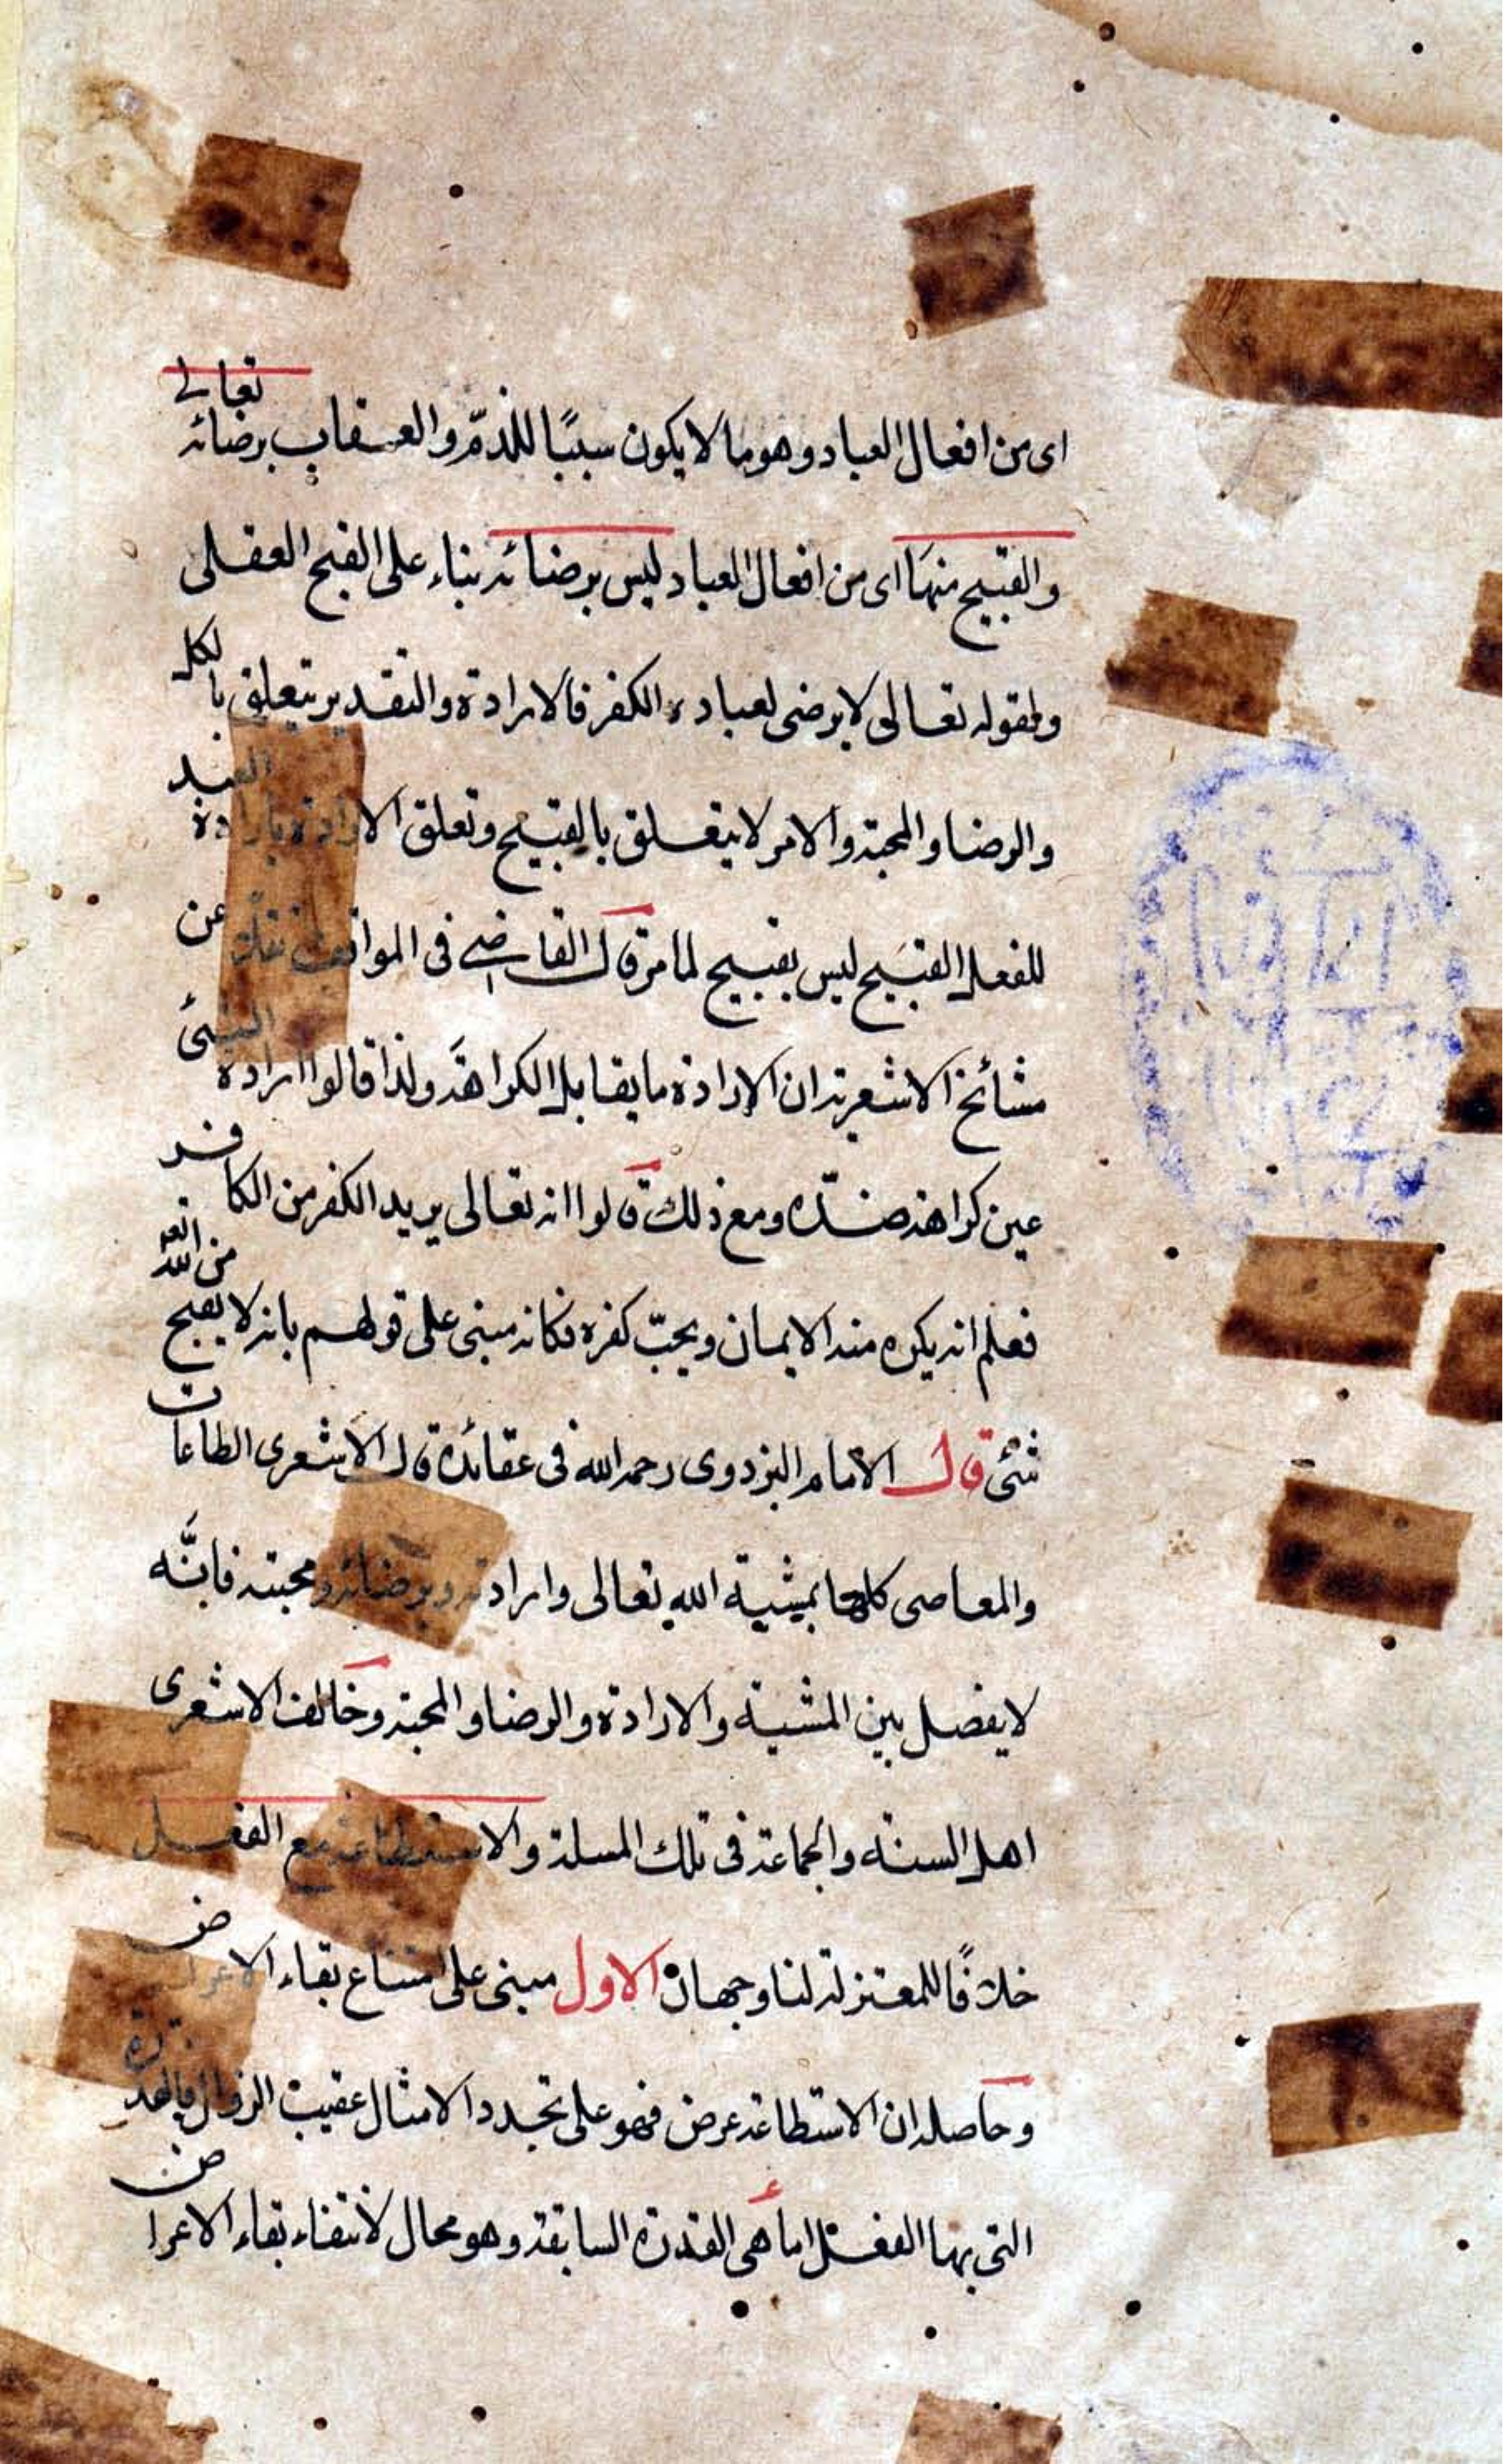 اى من افعال العباد وهو ما لا يكون سببًا للذمّ والعقاب برضائه تعالى
والقبيح منها اى من افعال العباد ليس برضائه بناء على القبح العقلى
ولقوله تعالى لا يرضى لعباده الكفر فالارادة والتقدير يتعلق بالكل
والرضا والمحبة والامر لا يتعلق بالقبيح وتعلق الارادة بارادة العبد
للفعل القبيح ليس بقبيح لما مر قال القاضى فى المواقف نقلا عن
مشائخ الاشعرية ان الارادة ما يقابل الكراهة ولذا قالوا ارادة الشئ
عين كراهة ضدّه ومع ذلك قالوا انه تعالى يريد الكفر من الكافر
فعلم انه يكره منه الايمان ويحبّ كفره فكانه مبنى على قولهم بانه لا يقبح من الله تعه
شئ قال الامام البزدوى رحمه الله فى عقائده قال الاشعرى الطاعات
والمعاصى كلها بمشية الله تعالى وارادته وبرضائه ومحبته فانّه
لا يفصل بين المشية والارادة والرضا والمحبة وخالف الاشعرى
اهل السنة والجماعة فى تلك المسلة والاستطاعة مع الفعل
خلافًا للمعتزلة لنا وجهان الاول مبنى على امتناع بقاء الاعراض
وحاصله ان الاستطاعة عرض فهو على تجدد الامثال عقيب الزوال فالقدرة
التى بها الفعل اما هى القدرة السابقة وهو محال لانتفاء بقاء الاعراض